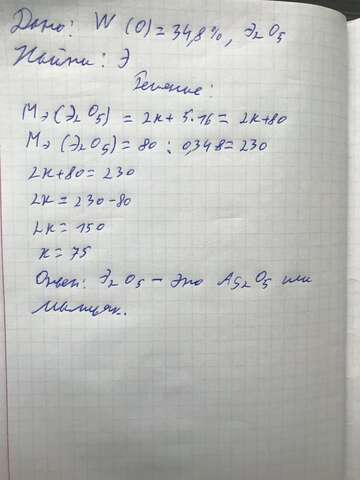 Дано: W (O) = 34,8%, Э₂O₅
Найти: Э
Решение:
Mэ (Э₂O₅) = 2x + 5·16 = 2x+80
Mэ (Э₂O₅) = 80 : 0,348 = 230
2x+80 = 230
2x = 230-80
2x = 150
x = 75
Ответ: Э₂O₅ - это As₂O₅ или
мышьяк.